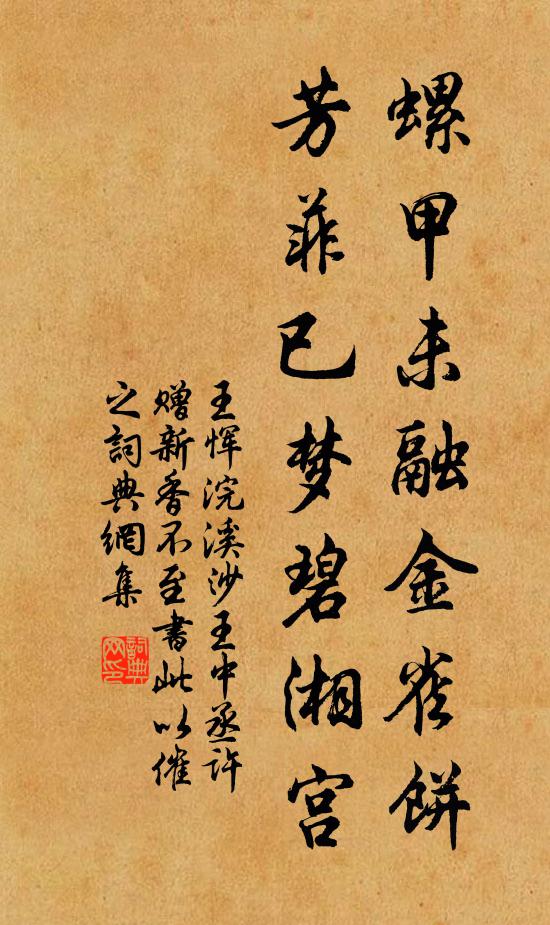 螺甲未融金雀餅
芳菲已梦碧湘宫
王恽浣溪沙王中丞许
赠新香不至書此以催
之詞典網集
詞典网印